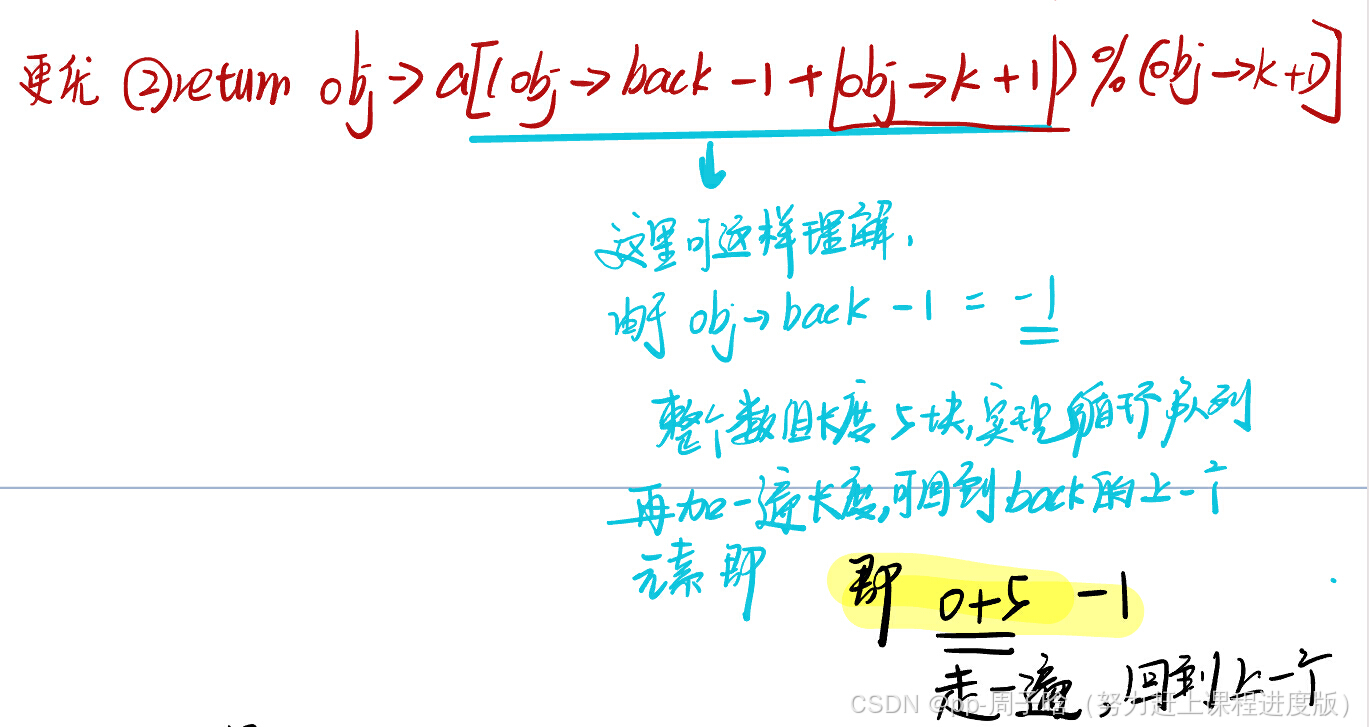 更优 ②return obj->a[(obj→back-1+(obj→k+1))%(obj→k+1)]
这里可这样理解,
由于 obj→back-1=-1
整个数组长度5块,实现循环队列
再加一遍长度,可回到back的上一个
元素即
即 0+5-1
走一遍,回到上一个
CSDN @pp-周子晗（努力赶上课程进度版）